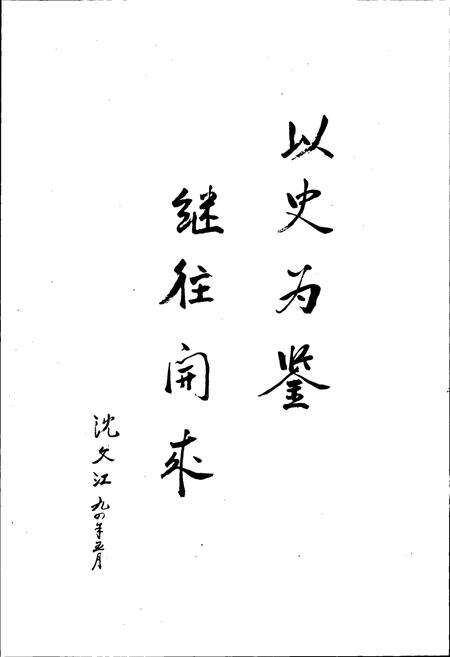 以史为鉴
继往開来
沈文江 九四年五月